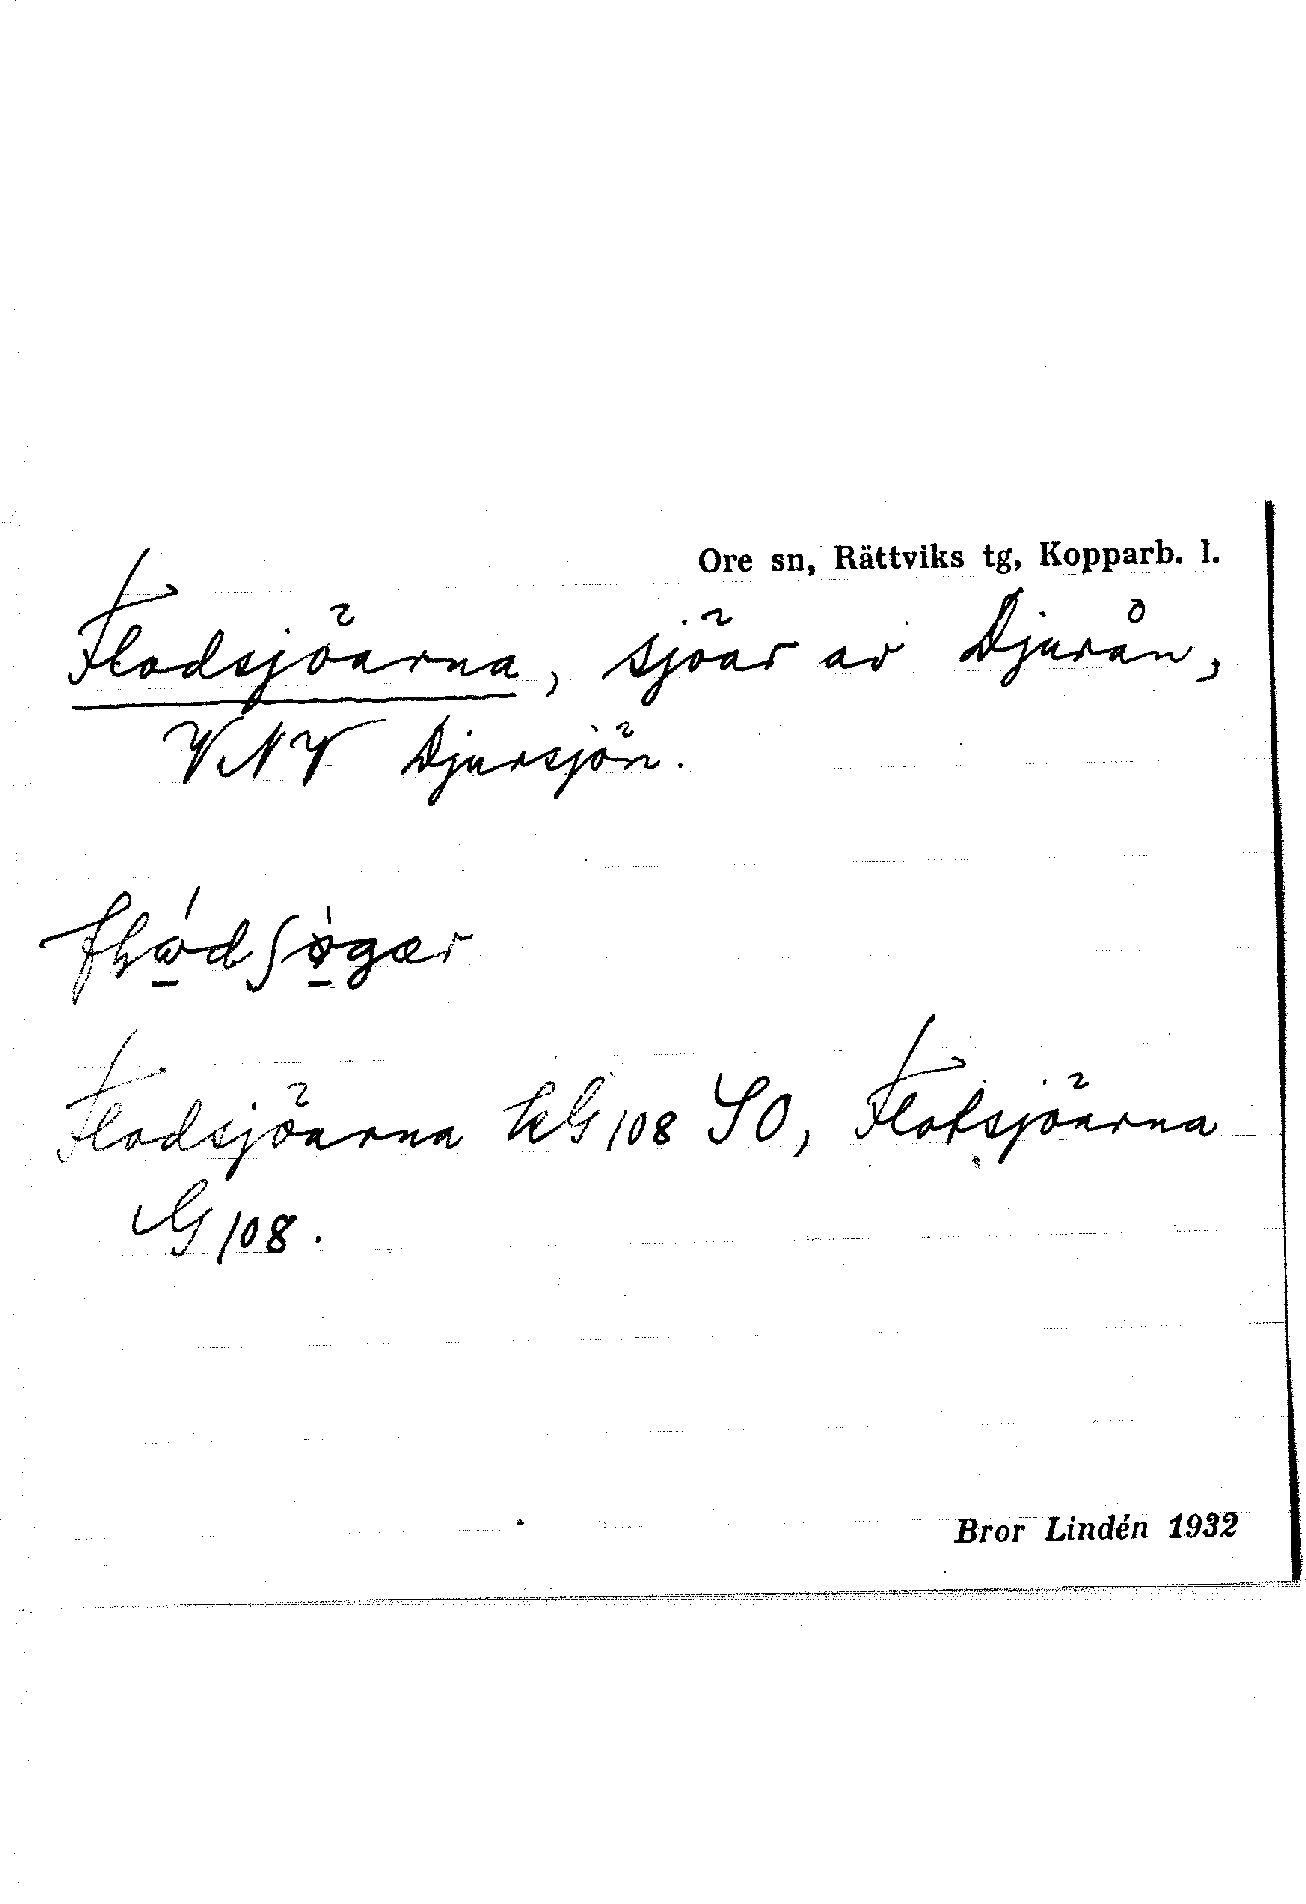 Ore sn, Rättviks tg, Kopparb. l.
Flodsjöarna, sjöar av Djurån,
VNV Djursjön.
Flodsjöarna G108 SO, Flotsjöarna
G108.
Bror Lindén 1932